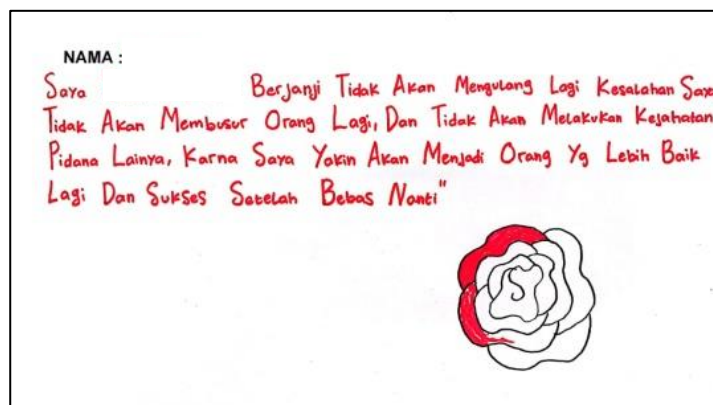 NAMA :
Saya Berjanji Tidak Akan Mengulang Lagi Kesalahan Saya
Tidak Akan Membusur Orang Lagi, Dan Tidak Akan Melakukan Kejahatan
Pidana Lainya, Karna Saya Yakin Akan Menjadi Orang Yg Lebih Baik
Lagi Dan Sukses Setelah Bebas Nanti"